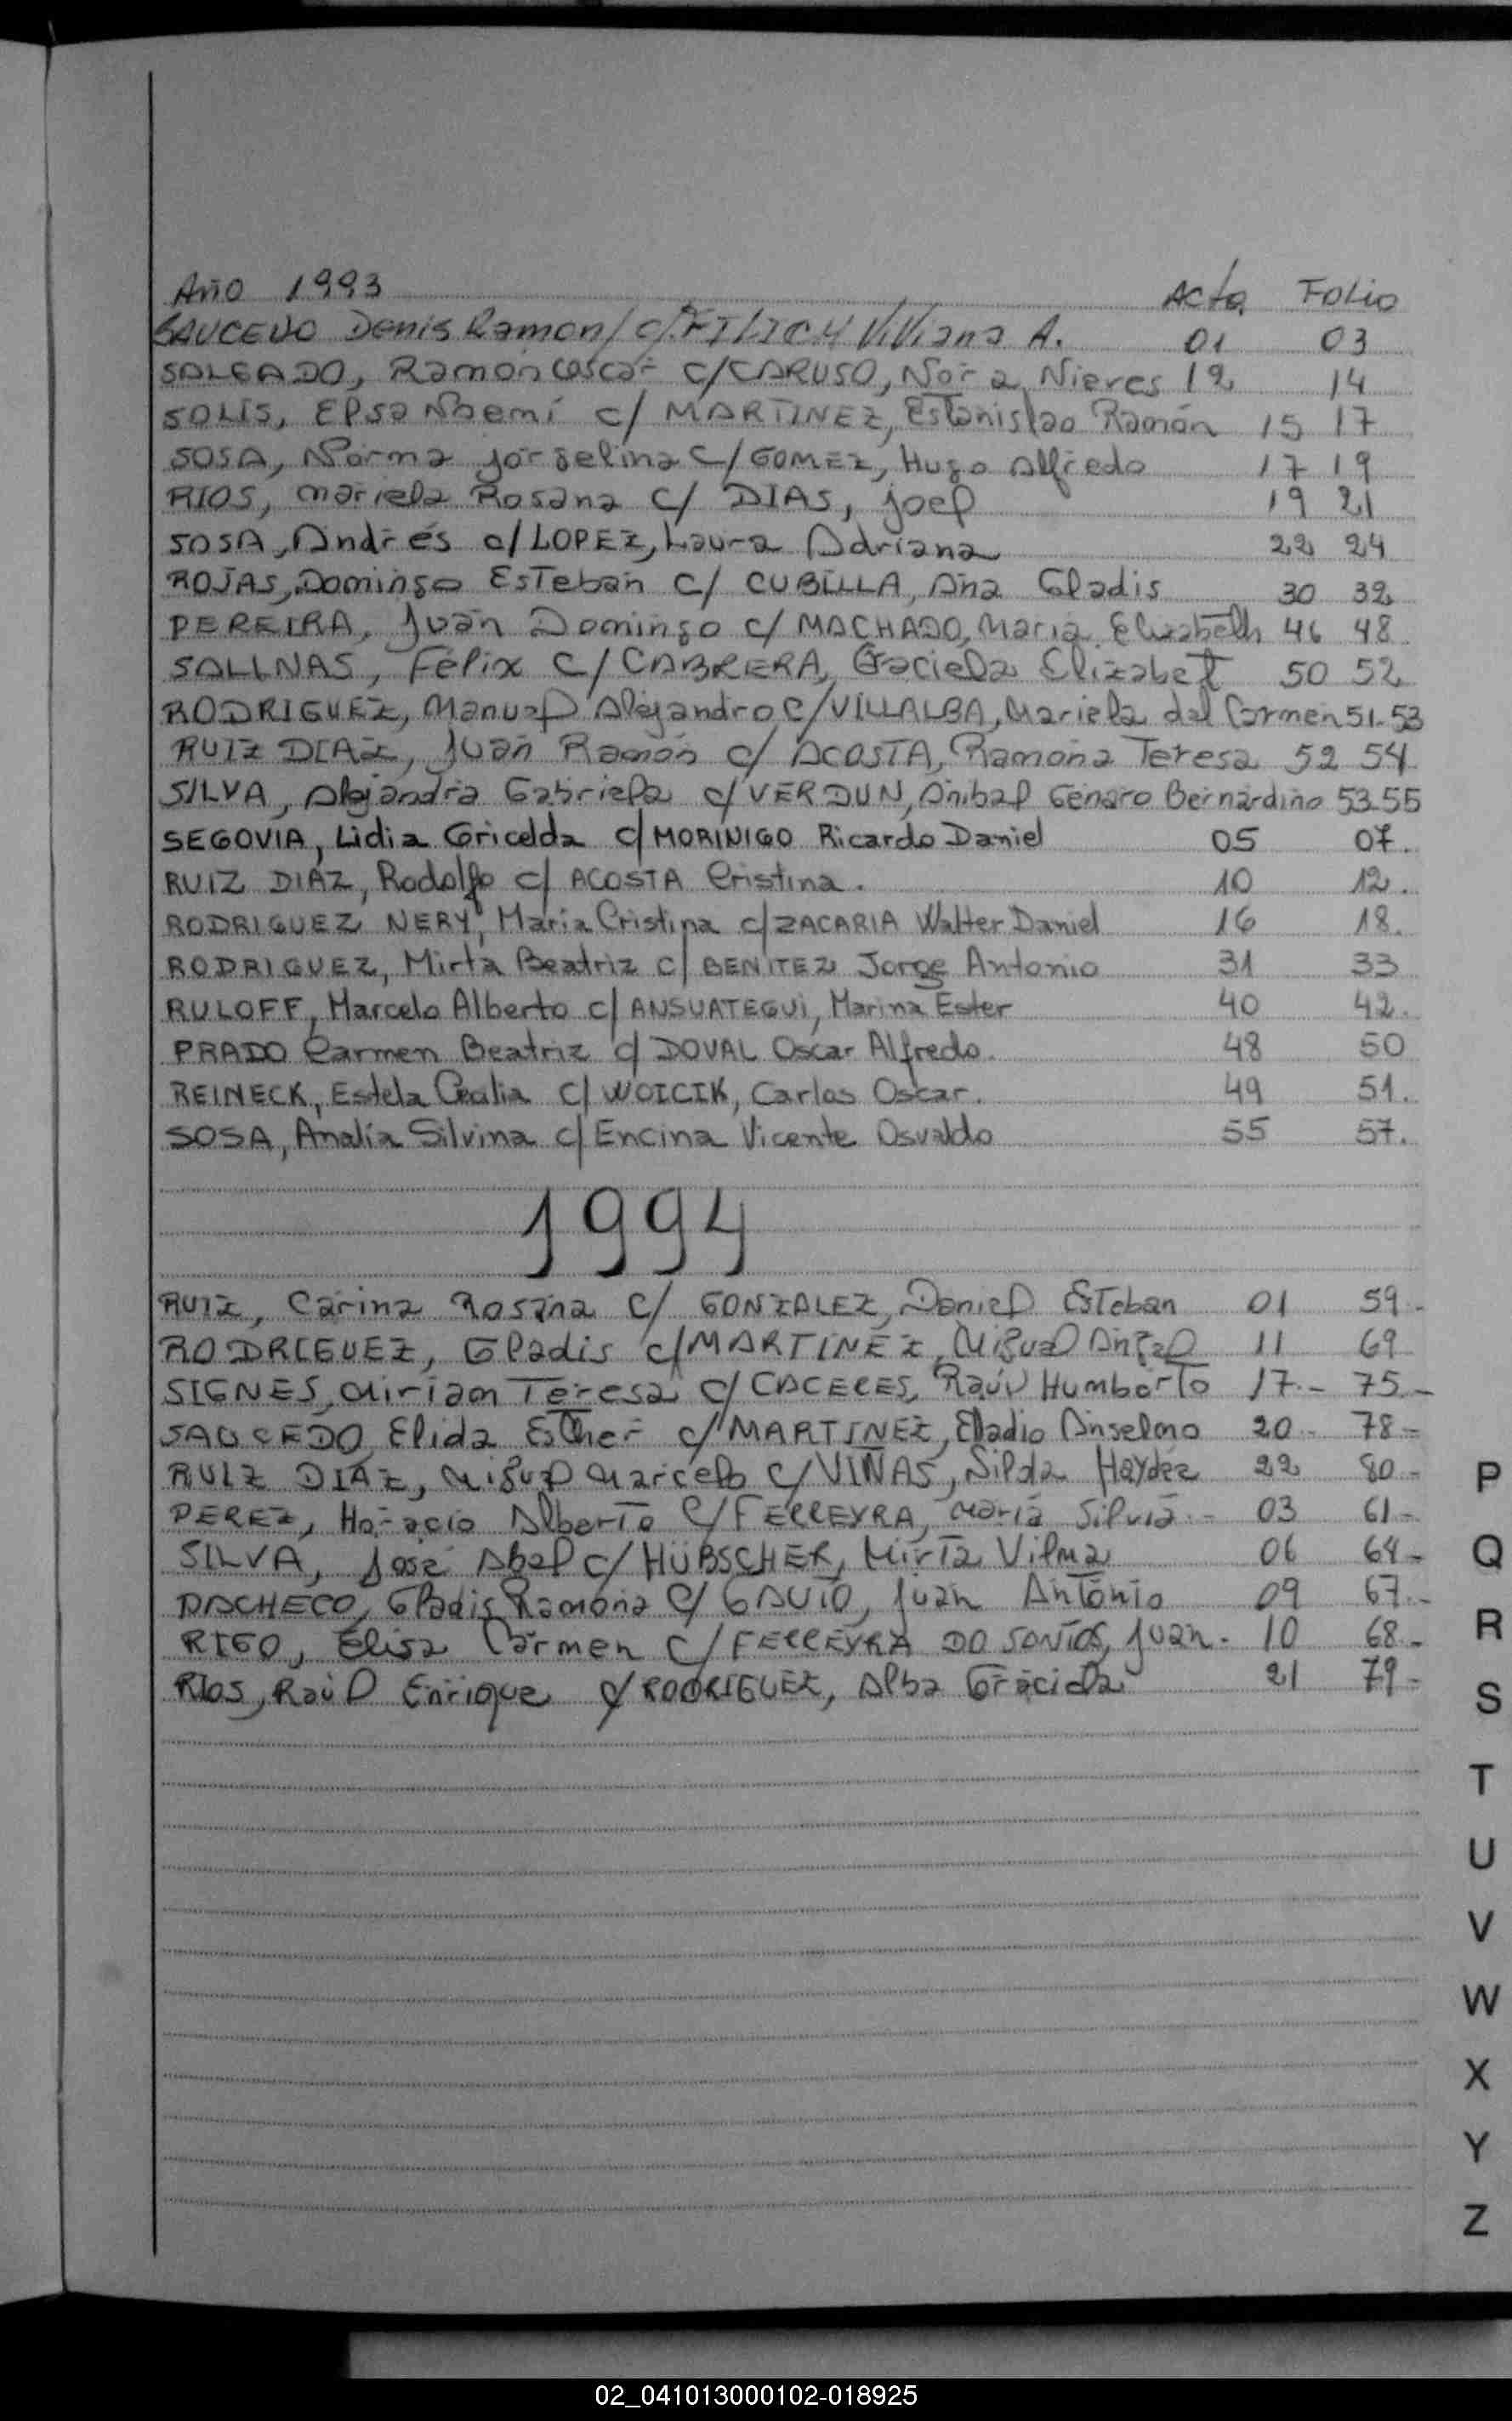 Año 1993 Acta Folio
SAUCEDO Denis Ramon/c/.FILICH Viviana A. 01 03
SALGADO, Ramón Oscar c/CARUSO, Nora Nieves 12 14
SOLIS, Elsa Noemí c/ MARTINEZ, Estanislao Ramón 15 17
SOSA, Norma Jorgelina c/GOMEZ, Hugo Alfredo 17 19
RIOS, Mariela Rosana c/ DIAS, Joel 19 21
SOSA, Andrés c/LOPEZ, Laura Adriana 22 24
ROJAS, Domingo Esteban c/ CUBILLA, Ana Gladis 30 32
PEREIRA, Juan Domingo c/ MACHADO, Maria Elizabeth 46 48
SALINAS, Félix c/CABRERA, Graciela Elizabet 50 52
RODRIGUEZ, Manuel Alejandro c/VILLALBA, Mariela del Carmen 51-53
RUIZ DIAZ, Juan Ramón c/ ACOSTA, Ramona Teresa 52 54
SILVA, Alejandra Gabriela c/VERDUN, Anibal Genaro Bernardino 53-55
SEGOVIA, Lidia Gricelda c/MORINIGO Ricardo Daniel 05 07.
RUIZ DIAZ, Rodolfo c/ ACOSTA Cristina. 10 12.
RODRIGUEZ NERY, Maria Cristina c/ZACARIA Walter Daniel 16 18.
RODRIGUEZ, Mirta Beatriz c/ BENITEZ Jorge Antonio 31 33
RULOFF, Marcelo Alberto c/ ANSUATEGUI, Marina Ester 40 42.
PRADO Carmen Beatriz c/ DOVAL Oscar Alfredo. 48 50
REINECK, Estela Cecilia c/ WOICIK, Carlos Oscar. 49 51.
SOSA, Analía Silvina c/ Encina Vicente Osvaldo 55 57.
1994
RUIZ, Carina Rosana c/ GONZALEZ, Daniel Esteban 01 59-
RODRIGUEZ, Gladis c/MARTINEZ, Miguel Angel 11 69
SIGNES, Miriam Teresa c/CACERES, Raúl Humberto 17.- 75.-
SAUCEDO, Elida Esther c/MARTINEZ, Eladio Anselmo 20- 78-
RUIZ DIAZ, Miguel Marcelo c/VIÑAS, Silda Haydée 22 80-
PEREZ, Horacio Alberto c/FERREYRA, Maria Silvia.- 03 61-
SILVA, José Abel c/HÜBSCHER, Mirta Vilma 06 64-
PACHECO, Gladis Ramona c/ GAUTO, Juan Antonio 09 67.-
RIGO, Elisa Carmen c/FERREYRA DO SANTOS, Juan.- 10 68-
RIOS, Raúl Enrique c/RODRIGUEZ, Alba Graciela 21 79-
P
Q
R
S
T
U
V
W
X
Y
Z
02_041013000102-018925